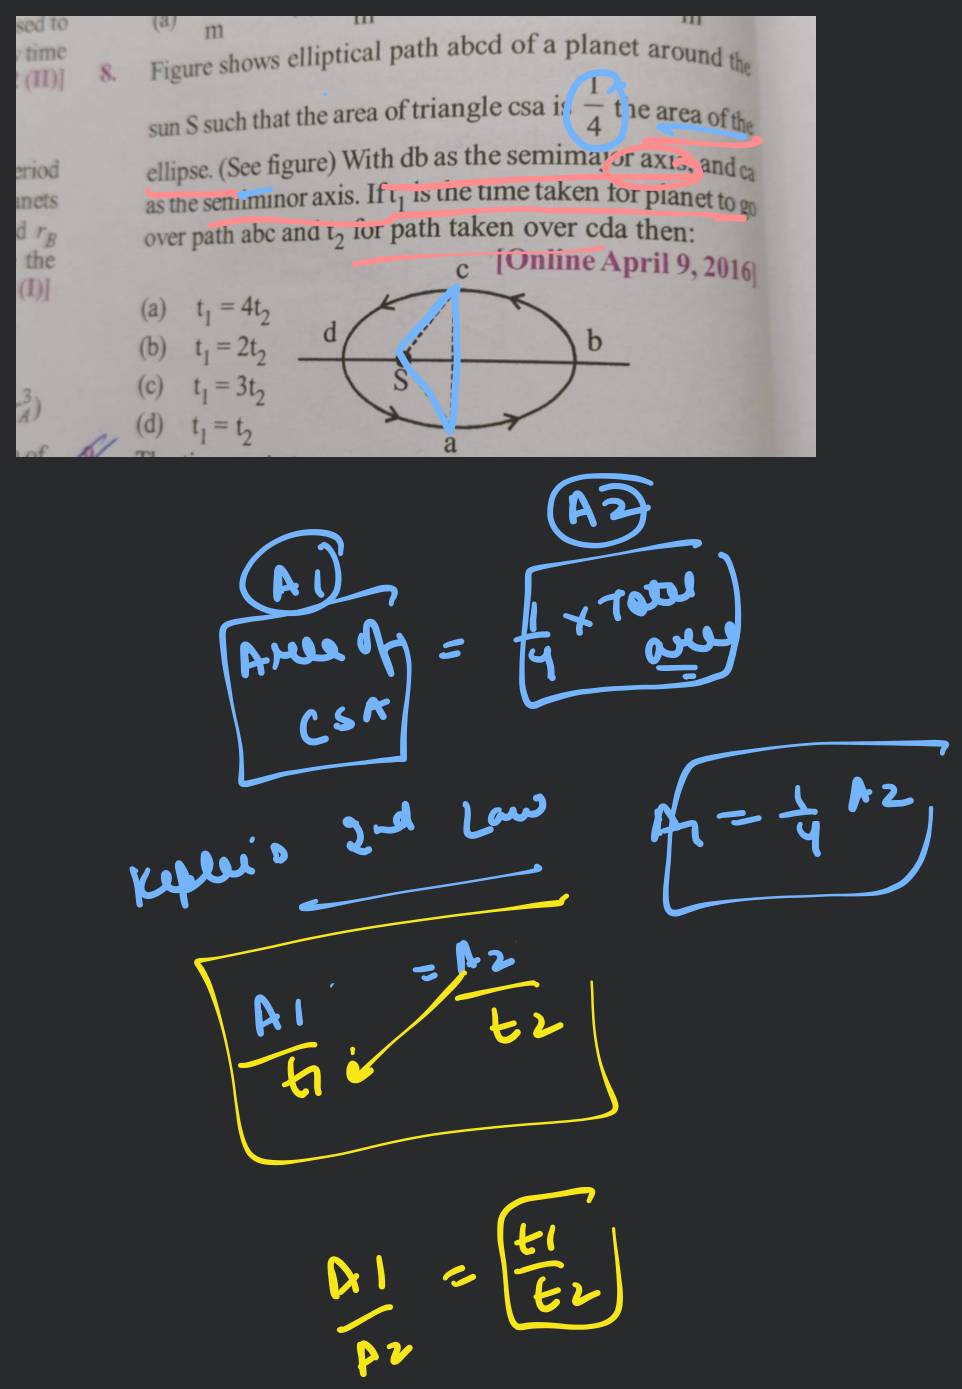 sed to
(a)
m
m
m
time
(II)]
8. Figure shows elliptical path abcd of a planet around the
sun S such that the area of triangle csa is 1/4 the area of the
ellipse. (See figure) With db as the semimajor axis, and ca
as the semiminor axis. If t₁ is the time taken for planet to go
over path abc and t₂ for path taken over cda then:
[Online April 9, 2016]
eriod
anets
d r_B
the
(I)]
(a) t₁ = 4t₂
(b) t₁ = 2t₂
(c) t₁ = 3t₂
(d) t₁ = t₂
c
d
b
S
a
of
A2
A1
Area of
CSA
=
1/4 × Total
area
A1 = 1/4 A2
Kepler's 2nd Law
A1/t1 = A2/t2
A1/A2 = t1/t2